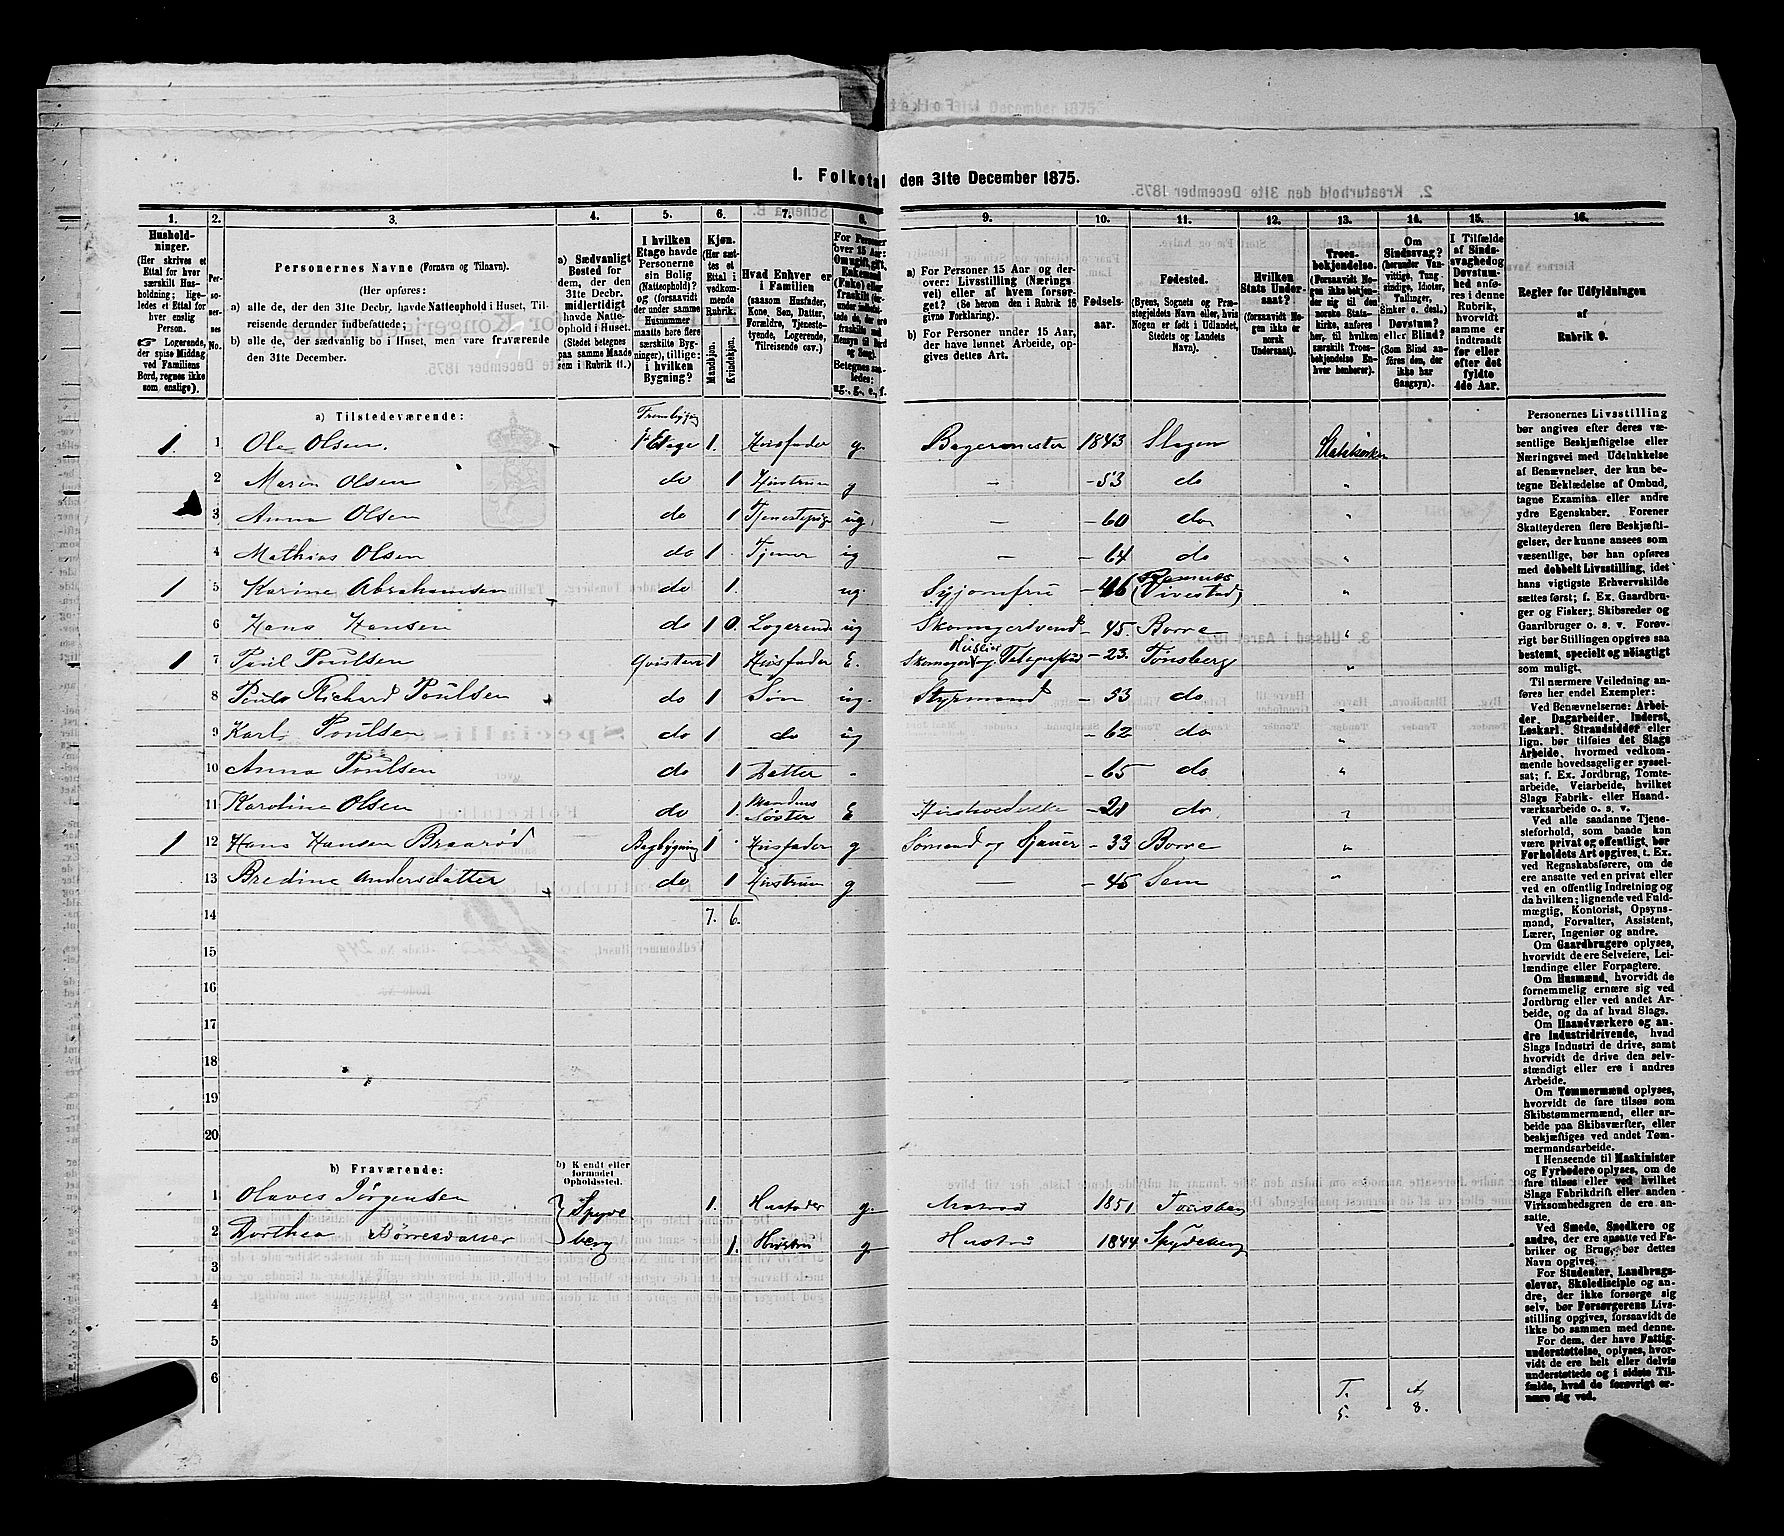 1. Folketal den 31te December 1875.
1. 2. 3. 4. 5. 6. 7. 8. 9. 10. 11. 12. 13. 14. 15. 16.
Hushold-
ninger.
(Her skrives et
Ettal for hver
særskilt Hus-
holdning; lige-
ledes et Ettal for
hver enslig
Person.
Logerende,
der spise Middag
ved Familiens
Bord, regnes ikke
som enslige).
Personernes Navne (Fornavn og Tilnavn).
(Her opføres:
a) alle de, der den 31te Decbr. havde Natteophold i Huset, Til-
reisende derunder indbefattede;
b) alle de, der sædvanlig bo i Huset, men vare fraværende
den 31te December.
a) Sædvanligt
Bosted for
dem, der den
31te Decbr.
midlertidigt
havde Natte-
ophold i Huset.
(Stedet betegnes
paa samme Maade
som i Rubrik 11.)
I hvilken
Etage havde
Personerne
sin Bolig
(Natteophold)?
og (forsaavidt
der under samme
Husnummer
maatte bore flere
særskilte Byg-
ninger), tillige:
i hvilken
Bygning?
Kjøn.
(Her sæt-
tes et
Ettal i
vedkom-
mende
Rubrik.
Mandkjøn.
Kvindekjøn.
Hvad Enhver er
i Familien
(saasom Husfader,
Kone, Søn, Datter,
Forældre, Tjeneste-
tyende, Logerende,
Tilreisende osv.)
a) For Personer 15 Aar og der-
over: Livsstilling (Nærings-
vei) eller af hvem forsør-
get? (Se herom den i Rubrik 16
givne Forklaring).
b) For Personer under 15 Aar,
der have lønnet Arbeide, op-
gives dettes Art.
Fødsels-
aar.
Fødested.
(Byens, Sognets og Præ-
stegjeldets Navn eller, hvis
Nogen er født i Udlandet,
Stedets og Landets
Navn).
Hvilken
Stats Under-
saat?
(forsaavidt No-
gen ikke er
norsk
Undersaat).
Troes-
bekjendelse.
(Forsaavidt No-
gen ikke bekjen-
der sig til den
norske Stats-
kirke, anføres
her, til hvilken
særskilt Troes-
bekjendelse En-
hver henhører).
Om
Sindssvag?
(herunder Van-
vittige, Tung-
sindige, Idioter,
Tullinger,
Sinker o. desl.)
Døvstum?
eller Blind?
(Som Blind an-
føres den, der
ikke har
Gangsyn).
I Tilfælde
af Sinds-
svaghed og
Døvstum-
hed anfø-
res i denne
Rubrik,
hvorvidt
samme er
indtraadt
før eller
efter det
fyldte
4de Aar.
Regler for Udfyldningen
af
Rubrik 9.
a) Tilstedeværende:
1. 1 Ole Olsen. 1ste Etage 1. Husfader g. Bagermester 1843 Slagen Statskirken
2 Maren Olsen do 1 Hustru g - - 53 do "
3 Anna Olsen do 1 Tjenestepige ug. - - 60 do "
4 Mathias Olsen do 1 Tjener ug - - 64 do "
1 5 Karine Abrahamsen do 1. ug. Syjomfru - 46 (Vivestad) "
6 Hans Hansen do 1 0. Logerende ug Skomagersvend - 45. Borre "
1 7 Poul Poulsen Qvisten 1 Husfader E. Skomager og - 23. Tønsberg "
8 Richard Poulsen do 1 Søn ug. Styrmand - 53 do "
9 Karl Poulsen do 1 do ug - 62 do "
10 Anna Poulsen do 1 Datter - - 65 do "
11 Karoline Olsen do 1. Mandens Søster E - 21 do "
1 12 Hans Hansen Braarød Bagbygning 1 Husfader g Sømand og Sjauer - 33 Borre "
13 Bredine Andersdatter do 1 Hustru g - - 45 Sem "
14 7. 6.
15
16
17
18
19
20
b) Fraværende:
b) Kendt eller
formodet
Opholdssted.
1 Olaves Jørgensen Spyde 1. Husfader g. Matros 1851 Tønsberg
2 Dorthea berg 1. Hustru g Hustru 1844 Spydeberg
3
4
5
6
T. 5. 8.
Personernes Livsstilling
bør angives efter deres væ-
sentlige Beskjæftigelse eller
Næringsvei med Udelukkelse
af Benævnelser, der kun be-
tegne Beklædelse af Ombud,
tagne Examina eller andre
ydre Egenskaber. Forener
Skatteyderen flere Beskjæfti-
gelser, der kunne ansees som
væsentlige, bør han opføres
med dobbelt Livsstilling, idet
hans vigtigste Erhvervskilde
sættes først; f. Ex. Gaardbru-
ger og Fisker; Skibsreder og
Gaardbruger o. s. v. Forøv-
rigt bør Stillingen opgives saa
bestemt, specielt og nøiagtigt
som muligt.
Til nærmere Veiledning an-
føres her endel Exempler:
Ved Benævnelserne: Arbei-
der, Dagarbeider, Inderst,
Løskarl, Strandsidder eller
lign. bør tilføies det Slags
Arbeide, hvormed vedkom-
mende hovedsagelig er syssel-
sat; f. Ex. Jordbrug, Tomte-
arbeide, Veiarbeide, hvilket
Slags Fabrik- eller Haand-
værksarbeide o. s. v.
Ved alle saadanne Tjene-
steforhold, som baade kan
være privat og offentligt, bør
Forholdets Art opgives, t. Ex.
ved Regnskabsførere, om de
ere ansatte ved en privat eller
ved en offentlig Indretning og
da hvilken; lignende ved Fuld-
mægtig, Kontorist, Opsyns-
mand, Forvalter, Assistent,
Lærer, Ingeniør og andre.
Om Gaardbrugere oplyses,
hvorvidt de ere Selveiere, Lei-
lændinge eller Forpagtere.
Om Husmænd, hvorvidt de
fornemmelig ernære sig ved
Jordbrug eller ved andet Ar-
beide, og da af hvad Slags.
Om Haandværkere og an-
dre Industridrivende, hvad
Slags Industri de drive, samt
hvorvidt de drive den selv-
stændigt eller ere i andres
Arbeide.
Om Tømmermænd oplyses,
hvorvidt de fare tilsøs som
Skibstømmermænd, eller ar-
beide paa Skibsværfter, eller
beskjæftiges ved andet Tøm-
mermandsarbeide.
I Henseende til Maskinister
og Fyrbødere oplyses, om de
fare tilsøs eller ved hvilket
Slags Fabrikdrift eller anden
Virksomhedsgren de ere an-
satte.
Ved Smede, Snedkere og
andre, der ere ansatte ved Fa-
briker og Brug, bør dettes
Navn opgives.
For Studenter, Landbrugs-
elever, Skoledisciple og an-
dre, der ikke forsørge sig
selv, bør Forsørgerens Livs-
stilling opgives, forsaavidt de
ikke bo sammen med denne.
For dem, der have Fattig-
understøttelse, oplyses, hvor-
vidt de ere helt eller delvis
understøttede og i sidste Til-
fælde, hvad de forøvrigt er-
nære sig ved.